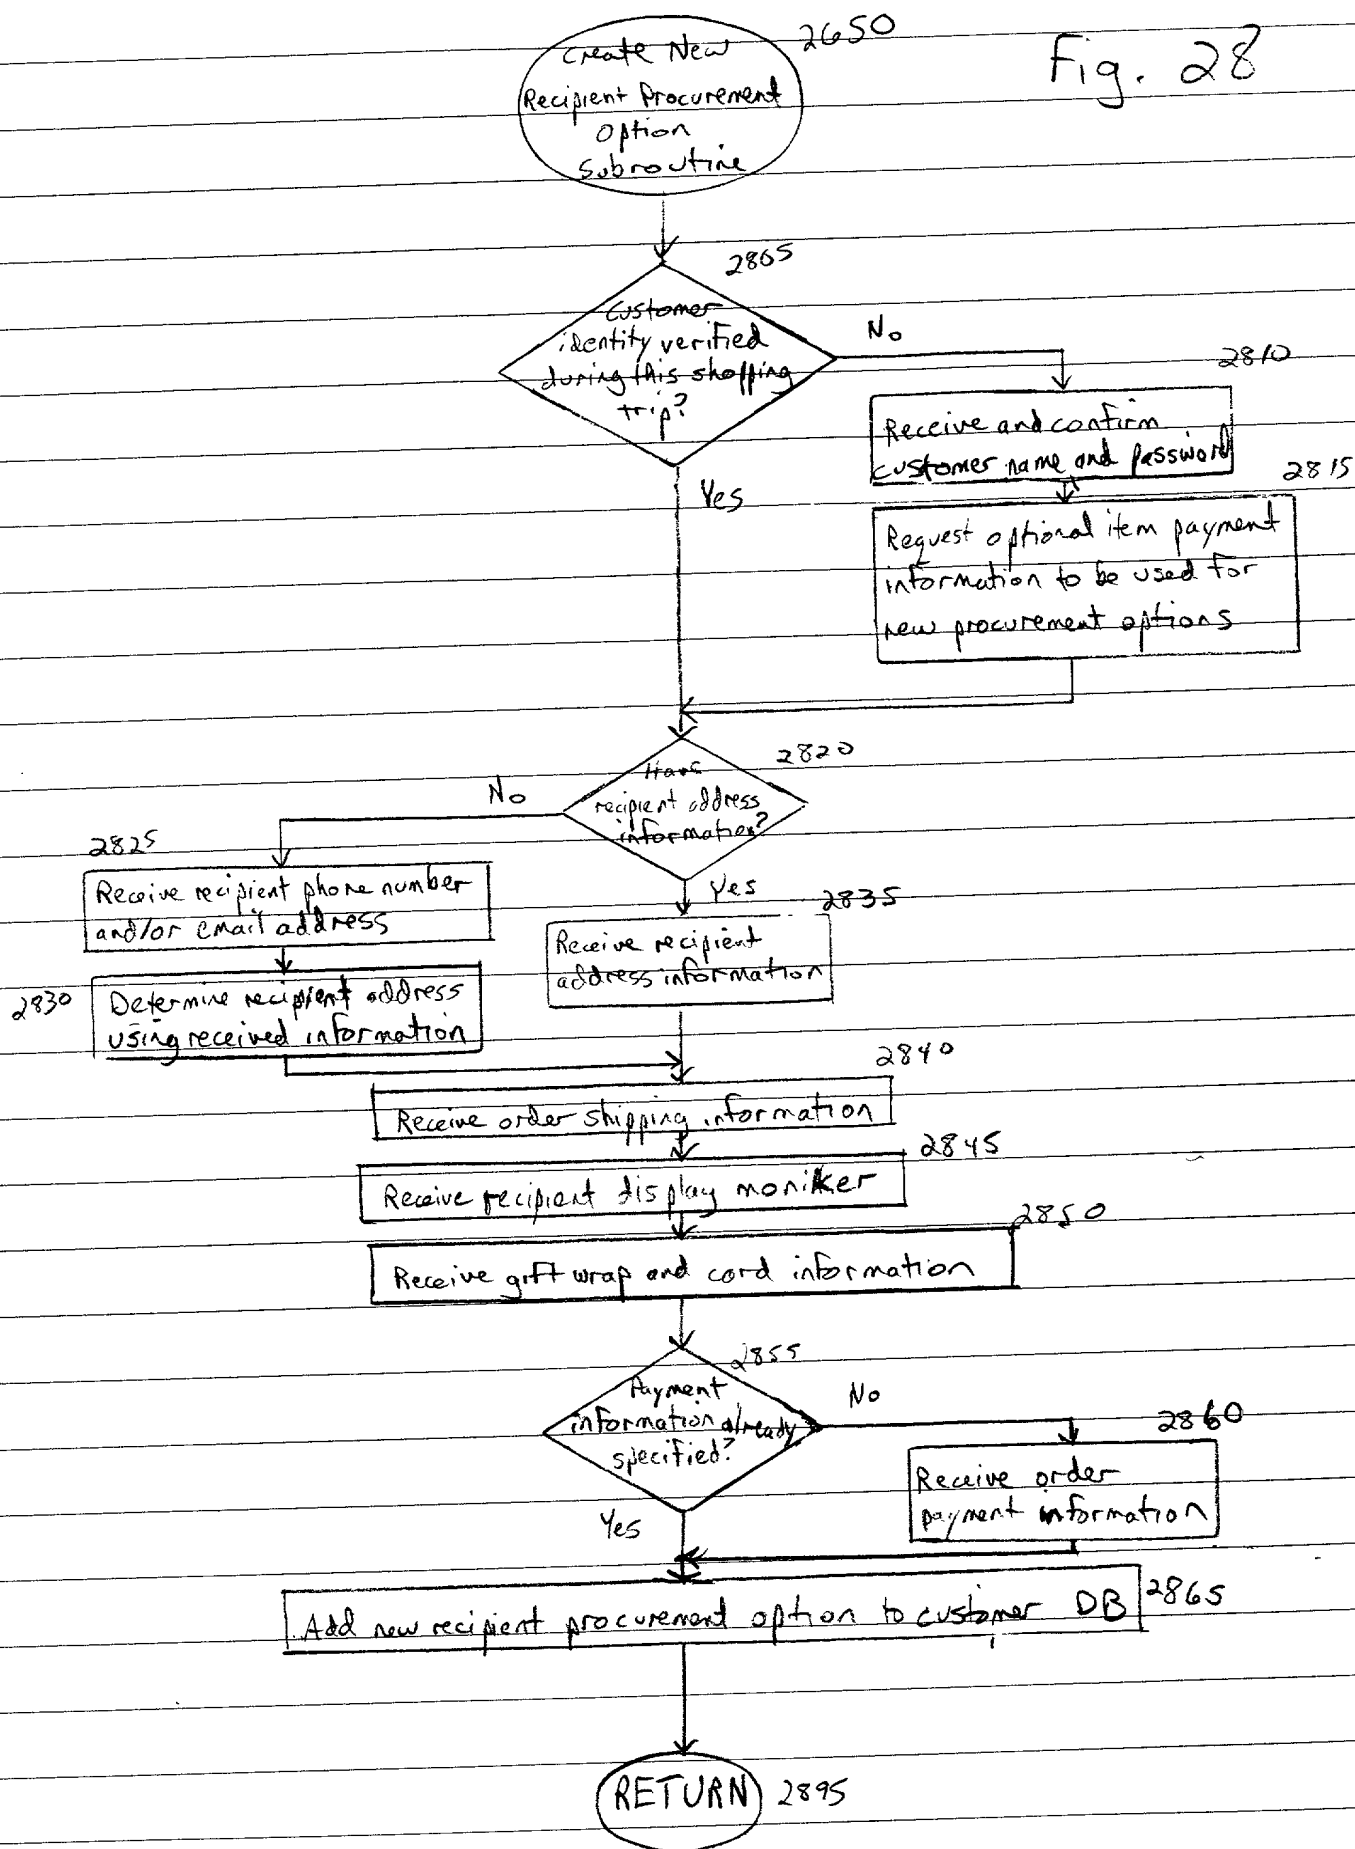 2650
Fig. 28
Create New
Recipient Procurement
Option
Subroutine
2805
Customer
identity verified
during this shopping
trip?
No
2810
Receive and confirm
customer name and password
Yes
2815
Request optional item payment
information to be used for
new procurement options
2820
Have
recipient address
information?
No
2825
Receive recipient phone number
and/or email address
Yes
2835
Receive recipient
address information
2830
Determine recipient address
using received information
2840
Receive order shipping information
2845
Receive recipient display moniker
2850
Receive gift wrap and card information
2855
Payment
information already
specified?
No
2860
Receive order
payment information
Yes
Add new recipient procurement option to customer DB
2865
RETURN
2895